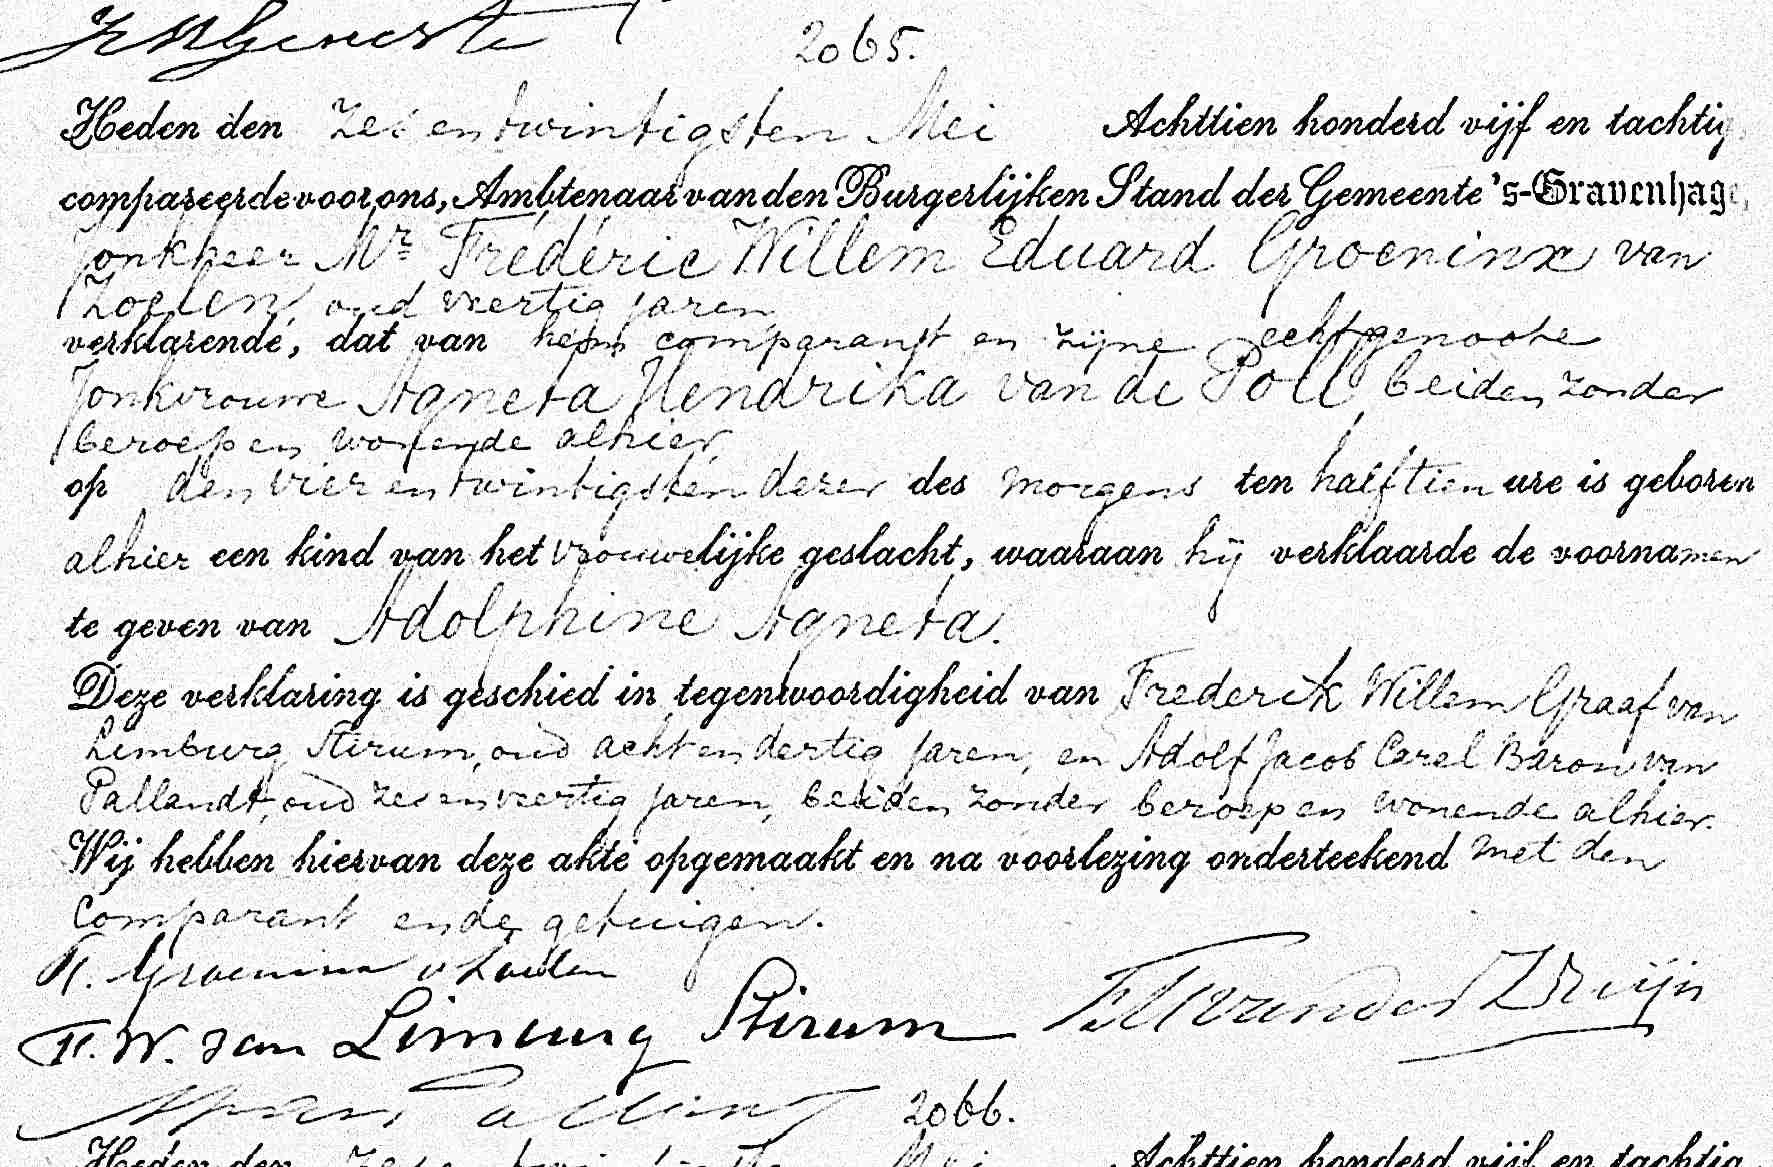 2065.
Heden den zes en twintigsten Mei Achttien honderd vijf en tachtig,
compareerde voor ons, Ambtenaar van den Burgerlijken Stand der Gemeente 's-Gravenhage,
Jonkheer Mr Frédéric Willem Eduard Groeninx van
Zoelen, oud veertig jaren
verklarende, dat van hem comparant en zijne echtgenoote
Jonkvrouwe Agneta Hendrika van de Poll, beiden zonder
beroep en wonende alhier,
op den vier en twintigsten dezer des morgens ten half tien ure is geboren
alhier een kind van het vrouwelijke geslacht, waaraan hij verklaarde de voornamen
te geven van Adolphine Agneta.
Deze verklaring is geschied in tegenwoordigheid van Frederik Willem Graaf van
Limburg Stirum, oud acht en dertig jaren, en Adolf Jacob Carel Baron van
Pallandt, oud zes en veertig jaren, beiden zonder beroep en wonende alhier.
Wij hebben hiervan deze akte opgemaakt en na voorlezing onderteekend met den
comparant en de getuigen.
F. Groeninx v Zoelen
F. W. van Limburg Stirum
van Pallandt
2066.
Heden den zes en twintigsten Mei Achttien honderd vijf en tachtig,